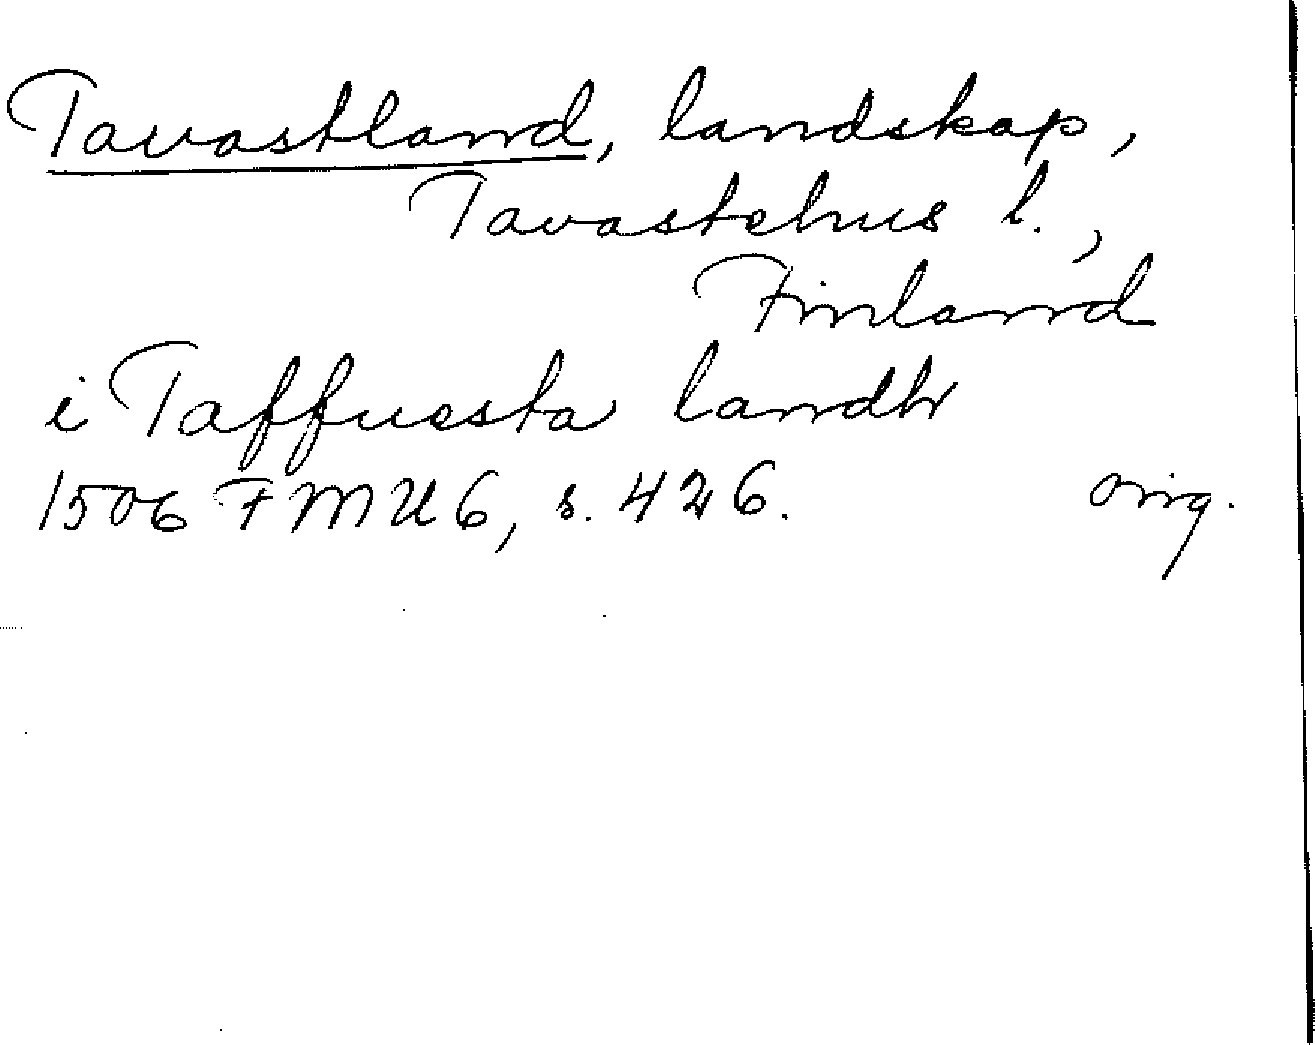 Tavastland, landskap,
Tavastehus l.,
Finland
i Taffuesta landh
1506 FMU 6, s. 426. orig.